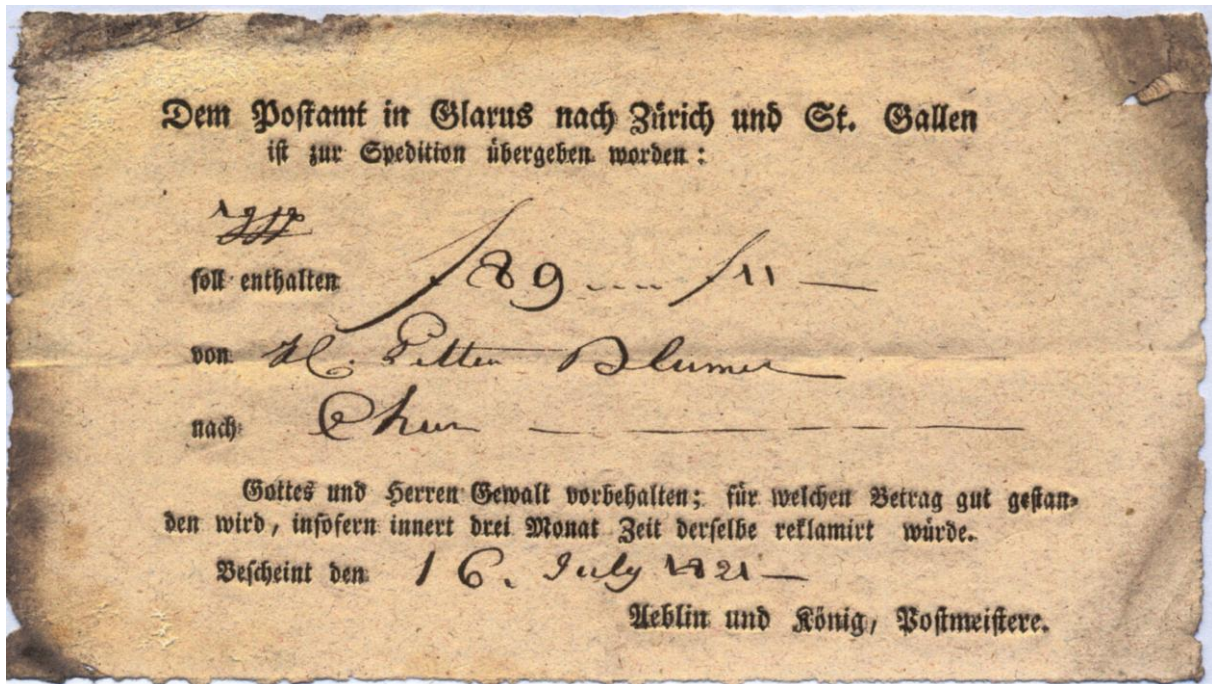 Dem Postamt in Glarus nach Zürich und St. Gallen
ist zur Spedition übergeben worden:
soll enthalten f 89 f 11 —
von H. Blumer
nach Chur — — — — —
Gottes und Herren Gewalt vorbehalten; für welchen Betrag gut gestan-
den wird, insofern innert drei Monat Zeit derselbe reklamirt würde.
Bescheint den 16. July 1821 —
Aeblin und König, Postmeistere.